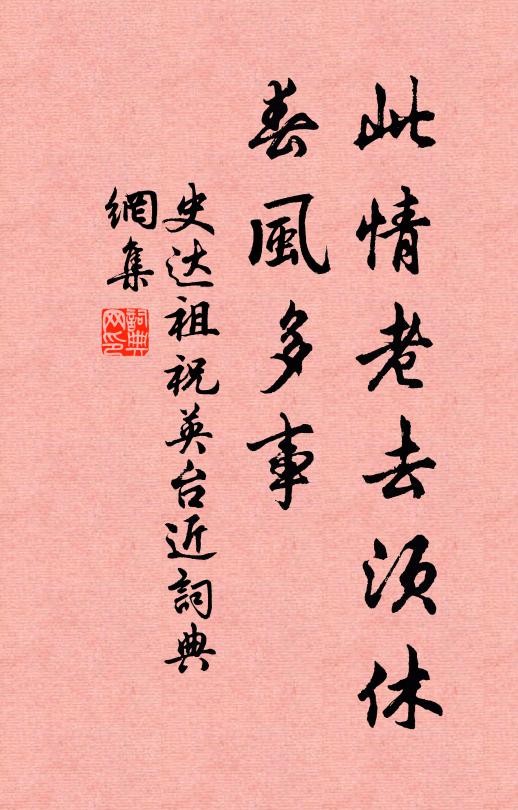 此情老去须休
春風多事
史达祖祝英台近詞典
網集
詞典
网印